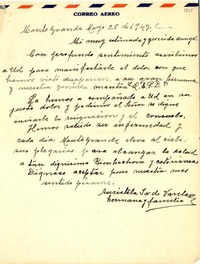 CORREO AEREO
Monte Grande Mayo 28 de 1947.
Mi muy estimada y querida amiga:
Con profundo sentimiento escribimos
a Ud para manifestarle el dolor con que
hemos visto desaparecer a su gran hermana
y nuestra querida maestra "Q.E.P.D"
La hemos acompañado a Ud en su
justo dolor y pedimos al Señor se digne
enviarle la resignación y el consuelo.
Hemos sabido su enfermedad y
cada día Montegrande eleva al cielo
sus plegarias para alcanzar la salud
a tan dignísima Bienhechora y coterránea
Dígnese aceptar pues nuestro más
sentido pésame.
de Varela
hermana y familia